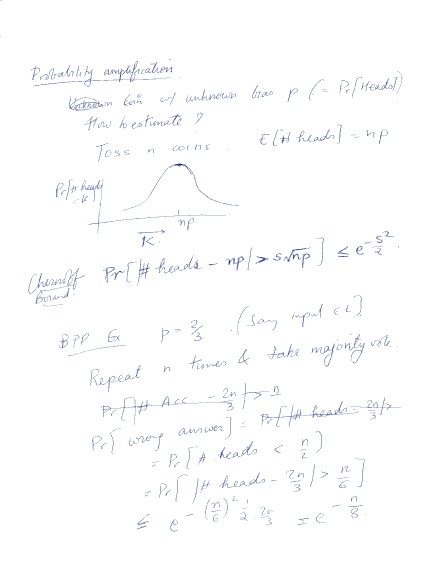 Probability amplification
coin w/ unknown bias p (= Pr[Heads])
How to estimate ?
Toss n coins. E[# heads] = np
Pr[# heads = K]
np
K
Chernoff Bound: Pr[|# heads - np| > s√np] ≤ e^{-s²/2}.
BPP Ex p = 2/3 . (Say input ∈ L)
Repeat n times & take majority vote.
Pr[|# Acc. - 2n/3| > n
Pr[wrong answer] = Pr[|# heads - 2n/3| >
= Pr[# heads < n/2]
= Pr[|# heads - 2n/3| > n/6]
≤ e^{-(n/6)² 1/2 · 2n/3} = e^{-n/8}.